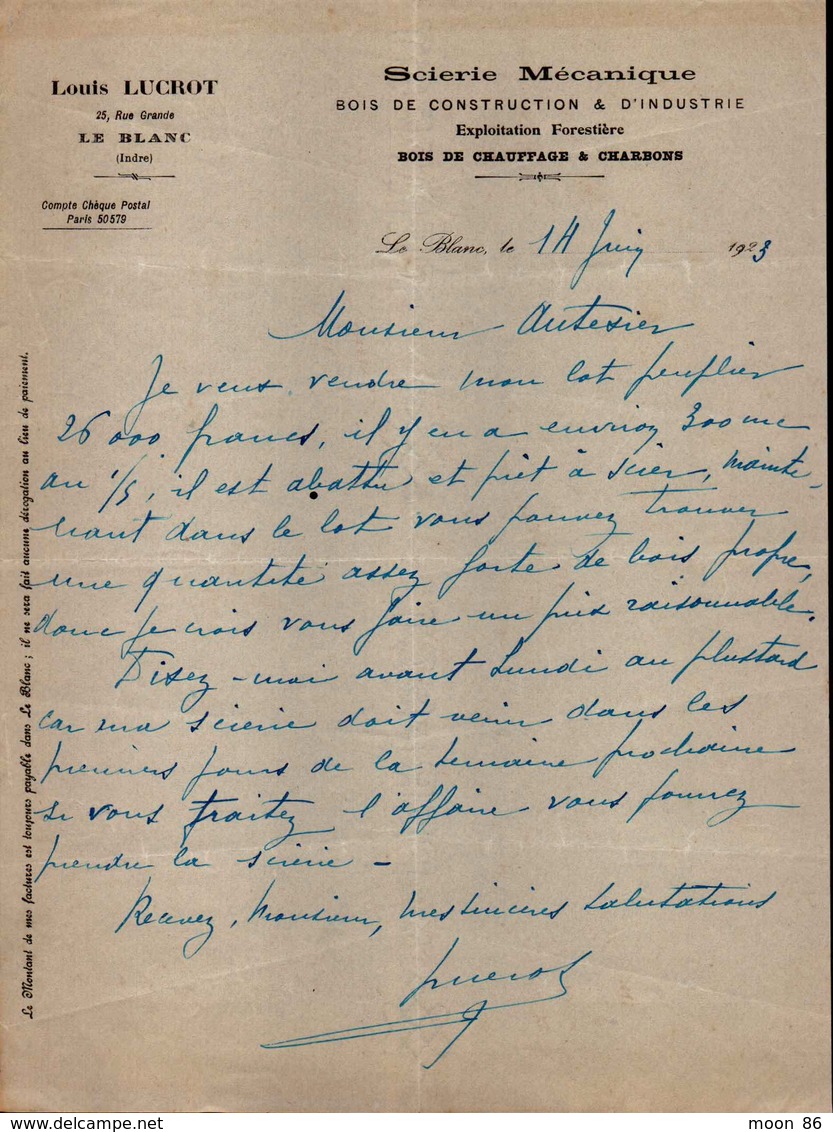 Louis LUCROT
25, Rue Grande
LE BLANC
(Indre)
Compte Chèque Postal
Paris 50579
Scierie Mécanique
BOIS DE CONSTRUCTION & D'INDUSTRIE
Exploitation Forestière
BOIS DE CHAUFFAGE & CHARBONS
Le Blanc, le 14 Juin 1923
Monsieur Autexier
Je veux vendre mon lot peuplier
26 000 francs, il y en a environ 300 mc
au 1/5, il est abattu et prêt à scier, mainte-
nant dans le lot vous pouvez trouver
une quantité assez forte de bois propre,
donc je crois vous faire un prix raisonnable.
Disez-moi avant Lundi au plustard
car ma scierie doit venir dans les
premiers jours de la semaine prochaine
si vous traitez l'affaire vous pourrez
prendre la scierie -
Recevez, Monsieur, mes sincères salutations
Lucrot
Le Montant de mes factures est toujours payable dans Le Blanc ; il ne sera fait aucune dérogation au lieu de paiement.
moon 86